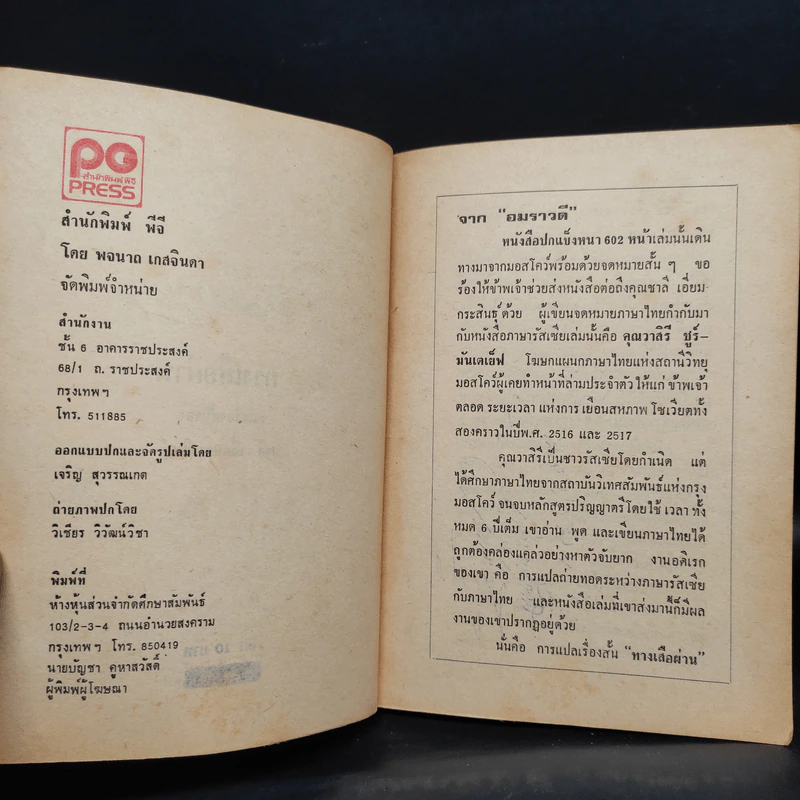 PG
สำนักพิมพ์ พีจี
PRESS
สำนักพิมพ์ พีจี
โดย พจนาถ เกสจินดา
จัดพิมพ์จำหน่าย
สำนักงาน
ชั้น 6 อาคารราชประสงค์
68/1 ถ. ราชประสงค์
กรุงเทพฯ
โทร. 511885
ออกแบบปกและจัดรูปเล่มโดย
เจริญ สุวรรณเกต
ถ่ายภาพปกโดย
วิเชียร วิวัฒน์วิชา
พิมพ์ที่
ห้างหุ้นส่วนจำกัดศึกษาสัมพันธ์
103/2-3-4 ถนนอำนวยสงคราม
กรุงเทพฯ โทร. 850419
นายบัญชา คูหาสวัสดิ์
ผู้พิมพ์ผู้โฆษณา
จาก "อมราวดี"
หนังสือปกแข็งหนา 602 หน้าเล่มนั้นเดิน
ทางมาจากมอสโคว์พร้อมด้วยจดหมายสั้น ๆ ขอ
ร้องให้ข้าพเจ้าช่วยส่งหนังสือต่อถึงคุณชาลี เอี่ยม
กระสินธุ์ ด้วย ผู้เขียนจดหมายภาษาไทยกำกับมา
กับหนังสือภาษารัสเซียเล่มนั้นคือ คุณวาสิรี ชูร์-
มันเตเย็ฟ โฆษกแผนกภาษาไทยแห่งสถานีวิทยุ
มอสโคว์ผู้เคยทำหน้าที่ล่ามประจำตัว ให้แก่ ข้าพเจ้า
ตลอด ระยะเวลา แห่งการ เยือนสหภาพ โซเวียตทั้ง
สองคราวในปีพ.ศ. 2516 และ 2517
คุณวาสิรีเป็นชาวรัสเซียโดยกำเนิด แต่
ได้ศึกษาภาษาไทยจากสถาบันวิเทศสัมพันธ์แห่งกรุง
มอสโคว์ จนจบหลักสูตรปริญญาตรีโดยใช้ เวลา ทั้ง
หมด 6 ปีเต็ม เขาอ่าน พูด และเขียนภาษาไทยได้
ถูกต้องคล่องแคล่วอย่างหาตัวจับยาก งานอดิเรก
ของเขา คือ การแปลถ่ายทอดระหว่างภาษารัสเซีย
กับภาษาไทย และหนังสือเล่มที่เขาส่งมานี้ก็มีผล
งานของเขาปรากฏอยู่ด้วย
นั่นคือ การแปลเรื่องสั้น "ทางเสือผ่าน"